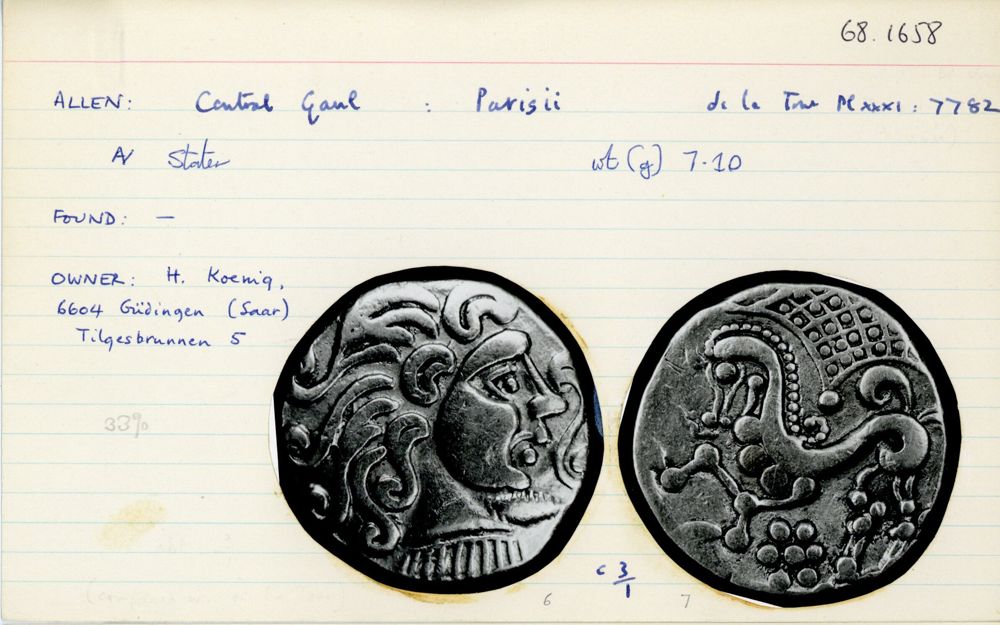 68.1658
ALLEN: Central Gaul : Parisii de la Tour Pl xxxi : 7782
AV Stater wt (g) 7.10
FOUND: —
OWNER: H. Koenig,
6604 Güdingen (Saar)
Tilgesbrunnen 5
33%
c 3/1
6 7